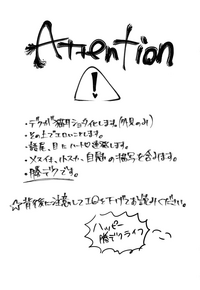 Attention
!
・デクが猫耳ショタ化します(外見のみ)
・その上でエロいことします。
・語尾、目にハート連発します。
・メスイキ、トコロテン、自慰の描写を含みます。
・勝デクです。
☆背後に注意してIQを下げてお読みください。
ハッピー
勝デクライフ